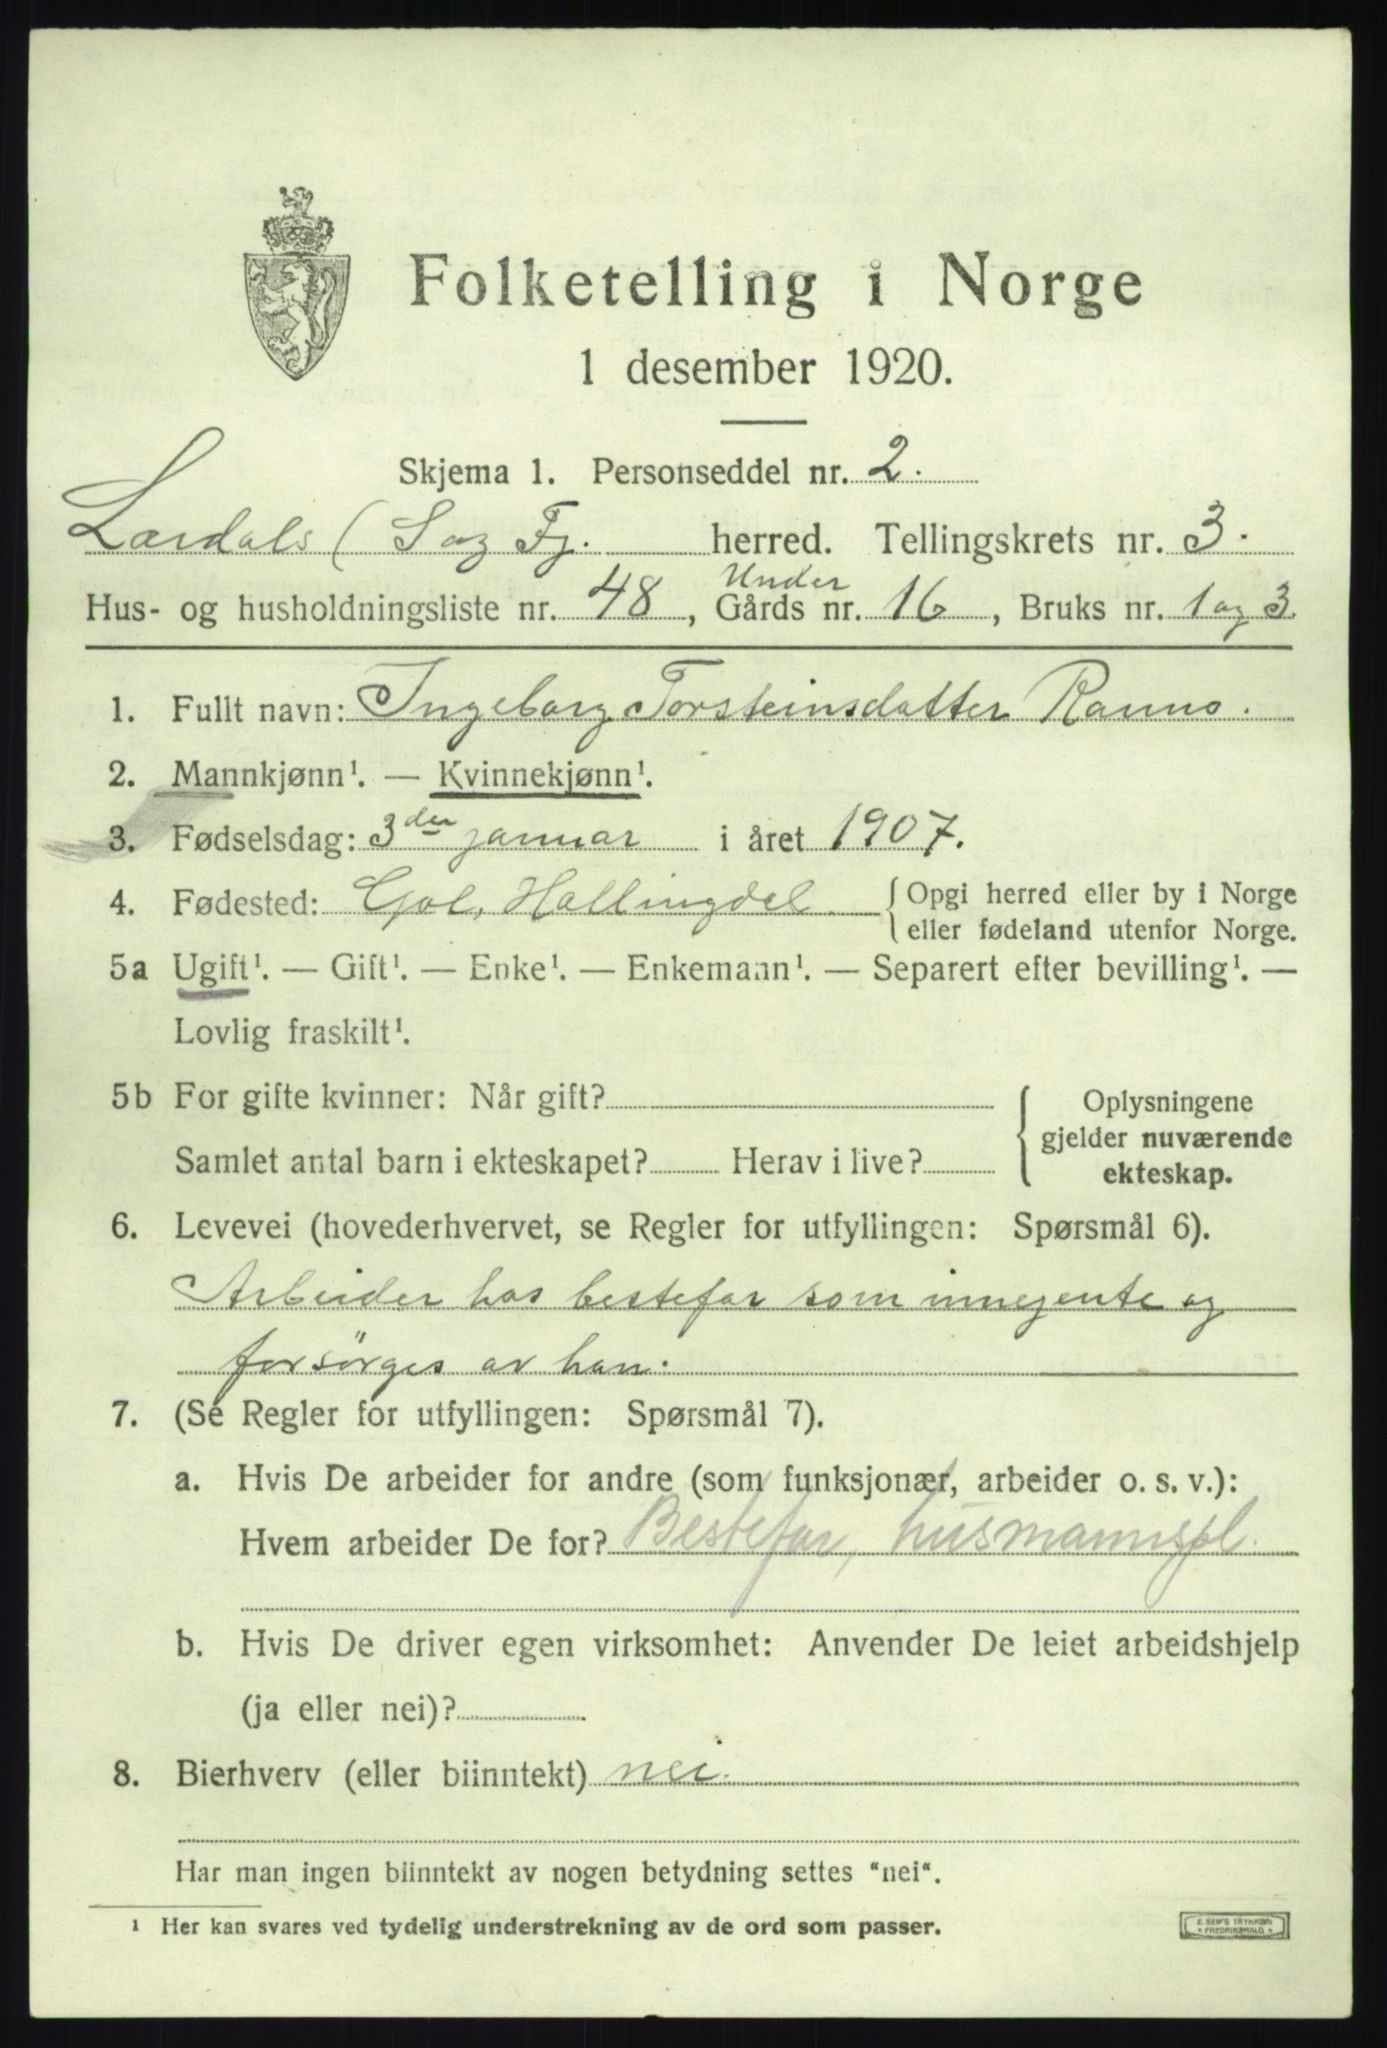 Folketelling i Norge
1 desember 1920.
Skjema 1. Personseddel nr. 2.
Lærdals (Sog Fj. herred. Tellingskrets nr. 3.
Under
Hus- og husholdningsliste nr. 48, Gårds nr. 16, Bruks nr. 1 og 3.
1. Fullt navn: Ingeborg Torsteinsdatter Ranno.
2. Mannkjønn¹. — Kvinnekjønn¹.
3. Fødselsdag: 3der januar i året 1907.
4. Fødested: Gol, Hallingdal { Opgi herred eller by i Norge
eller fødeland utenfor Norge.
5a Ugift¹. — Gift¹. — Enke¹. — Enkemann¹. — Separert efter bevilling¹. —
Lovlig fraskilt¹.
5b For gifte kvinner: Når gift?
Samlet antal barn i ekteskapet? Herav i live?
Oplysningene
gjelder nuværende
ekteskap.
6. Levevei (hovederhvervet, se Regler for utfyllingen: Spørsmål 6).
Arbeider hos bestefar som innejente og
forsörges av han.
7. (Se Regler for utfyllingen: Spørsmål 7).
a. Hvis De arbeider for andre (som funksjonær, arbeider o. s. v.):
Hvem arbeider De for? Bestefar, husmannspl.
b. Hvis De driver egen virksomhet: Anvender De leiet arbeidshjelp
(ja eller nei)?
8. Bierhverv (eller biinntekt) nei.
Har man ingen biinntekt av nogen betydning settes "nei".
¹ Her kan svares ved tydelig understrekning av de ord som passer.
E. SEM'S TRYKKERI
* FREDRIKSHALD *